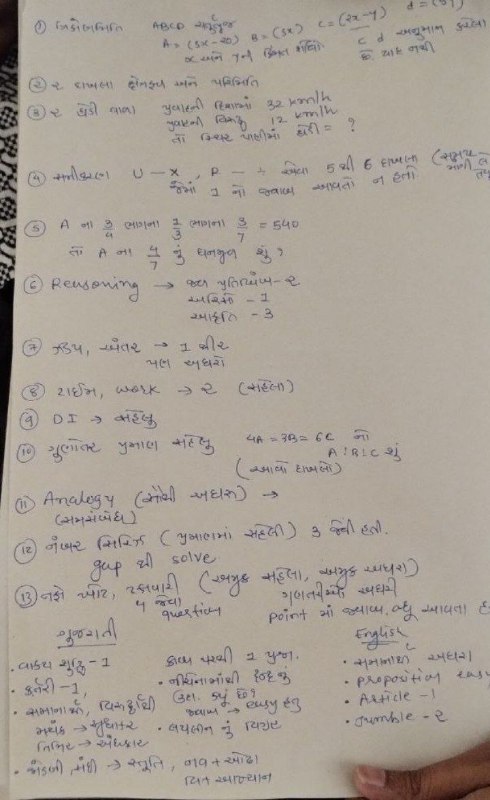 ① ત્રિકોણમિતિ ABCD ચતુષ્કૂણ
A = (3x-20) B = (3x) C = (2x-4) d =
x અને y ની કિંમત શોધો. C d અનુમાન કરેલા છે. યાદ નથી
② ૨ દાખલા ક્ષેત્રફળ અને પરિમિતિ
③ ૨ હોડી વાળા પ્રવાહની દિશામાં 32 km/h
પ્રવાહની વિરુદ્ધ 12 km/h
તો સ્થિર પાણીમાં હોડી = ?
④ સમીકરણ U - X, P - ÷ એવા 5 થી 6 દાખલા
જેમાં 1 નો જવાબ આવતો ન હતો.
⑤ A ના 3/4 ભાગના 1/3 ભાગના 3/7 = 540
તો A ના 4/7 નું ઘનમૂળ શું?
⑥ Reasoning → જળ પ્રતિબિંબ - ૨
અરીસો - 1
આકૃતિ - 3
⑦ ઝડપ, અંતર → 1
પણ અઘરો
⑧ ટાઈમ, work → ૨ (સહેલા)
⑨ DI → સહેલુ
⑩ ગુણોત્તર પ્રમાણ સહેલુ 4A = 3B = 6C નો
A : B : C શું
(આવો દાખલો)
⑪ Analogy (સૌથી અઘરુ) →
(સમસંબંધ)
⑫ નંબર સિરિઝ (પ્રમાણમાં સહેલી) 3 જેવી હતી.
gap થી solve.
⑬ નફો ખોટ, ટકાવારી (અમુક સહેલા, અમુક અઘરા)
4 જેવા question ગણતરી અઘરી
point માં જવાબ વધુ આવતા હ
ગુજરાતી
• વાક્ય શુદ્ધિ - 1
• કર્તરી - 1,
• સમાનાર્થી, વિરુદ્ધાર્થી
મયંક → સુધાકર
તિમિર → અંધકાર
• મંડળી, → સ્તુતિ,
કાવ્ય પરથી 1 પ્રશ્ન.
• નીચેનામાંથી
ઉદા. કયું છે?
જવાબ → easy હતુ
• નું વિગ્રહ
English
• સમાનાર્થી અઘરા
• preposition easy
• Article - 1
• Jumble - 2